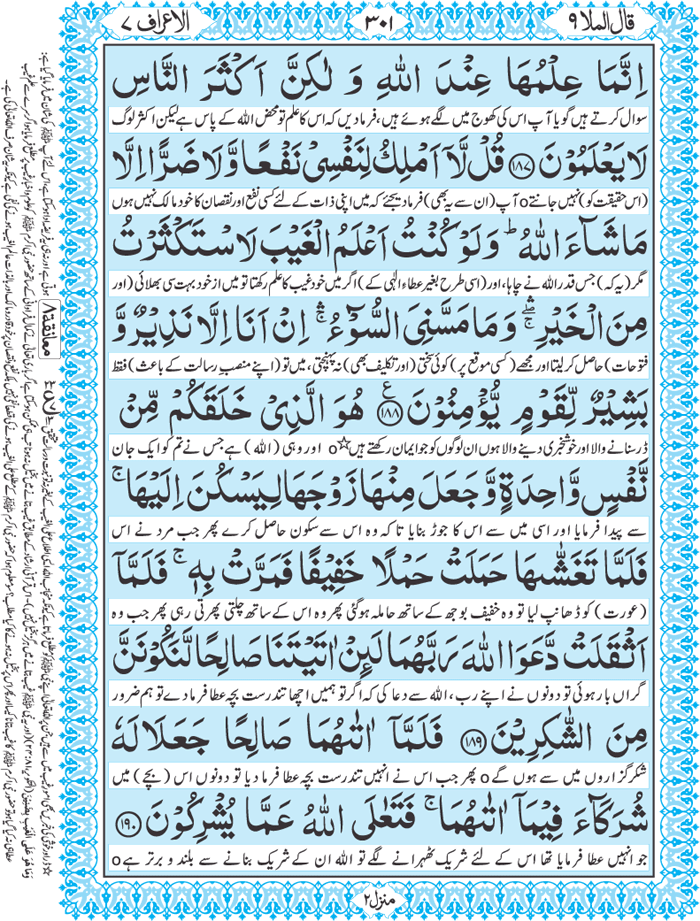 قال الملا ۹
۳۰۱
الاعراف ۷
اِنَّمَا عِلْمُهَا عِنْدَ اللّٰهِ وَ لٰكِنَّ اَكْثَرَ النَّاسِ
سوال کرتے ہیں گویا آپ اس کی کھوج میں لگے ہوئے ہیں، فرمادیں کہ اس کا علم تو محض اللہ کے پاس ہے لیکن اکثر لوگ
لَا یَعْلَمُوْنَ ﴿۱۸۷﴾ قُلْ لَّاۤ اَمْلِكُ لِنَفْسِیْ نَفْعًا وَّ لَا ضَرًّا اِلَّا
(اس حقیقت کو) نہیں جانتے o آپ (ان سے یہ بھی) فرما دیجئے کہ میں اپنی ذات کے لئے کسی نفع اور نقصان کا خود مالک نہیں ہوں
مَا شَآءَ اللّٰهُ ؕ وَ لَوْ كُنْتُ اَعْلَمُ الْغَیْبَ لَا سْتَكْثَرْتُ
مگر (یہ کہ) جس قدر اللہ نے چاہا، اور (اسی طرح بغیر عطاءِ الٰہی کے) اگر میں خود غیب کا علم رکھتا تو میں از خود بہت سی بھلائی (اور
مِنَ الْخَیْرِ ۛۖۚ وَ مَا مَسَّنِیَ السُّوْٓءُ ۛۚ اِنْ اَنَا اِلَّا نَذِیْرٌ وَّ
فتوحات) حاصل کر لیتا اور مجھے (کسی موقع پر) کوئی سختی (اور تکلیف بھی) نہ پہنچتی، میں تو (اپنے منصبِ رسالت کے باعث) فقط
بَشِیْرٌ لِّقَوْمٍ یُّؤْمِنُوْنَ ﴿۱۸۸﴾ ع هُوَ الَّذِیْ خَلَقَكُمْ مِّنْ
ڈر سنانے والا اور خوشخبری دینے والا ہوں ان لوگوں کو جو ایمان رکھتے ہیں☆ o اور وہی (اللہ) ہے جس نے تم کو ایک جان
نَّفْسٍ وَّاحِدَةٍ وَّ جَعَلَ مِنْهَا زَوْجَهَا لِیَسْكُنَ اِلَیْهَا ۚ
سے پیدا فرمایا اور اسی میں سے اس کا جوڑ بنایا تاکہ وہ اس سے سکون حاصل کرے پھر جب مرد نے اس
فَلَمَّا تَغَشّٰىهَا حَمَلَتْ حَمْلًا خَفِیْفًا فَمَرَّتْ بِهٖ ۚ فَلَمَّاۤ
(عورت) کو ڈھانپ لیا تو وہ خفیف بوجھ کے ساتھ حاملہ ہوگئی پھر وہ اس کے ساتھ چلتی پھرتی رہی پھر جب وہ
اَثْقَلَتْ دَّعَوَا اللّٰهَ رَبَّهُمَا لَىِٕنْ اٰتَیْتَنَا صَالِحًا لَّنَكُوْنَنَّ
گراں بار ہوئی تو دونوں نے اپنے رب، اللہ سے دعا کی کہ اگر تو ہمیں اچھا تندرست بچہ عطا فرما دے تو ہم ضرور
مِنَ الشّٰكِرِیْنَ ﴿۱۸۹﴾ فَلَمَّاۤ اٰتٰىهُمَا صَالِحًا جَعَلَا لَهٗ
شکر گزاروں میں سے ہوں گے o پھر جب اس نے انہیں تندرست بچہ عطا فرما دیا تو دونوں اس (بچے) میں
شُرَكَآءَ فِیْمَاۤ اٰتٰىهُمَا ۚ فَتَعٰلَى اللّٰهُ عَمَّا یُشْرِكُوْنَ ﴿۱۹۰﴾
جو انہیں عطا فرمایا تھا اس کے لئے شریک ٹھہرانے لگے تو اللہ ان کے شریک بنانے سے بلند و برتر ہے o
منزل ۲
معانقة ۸